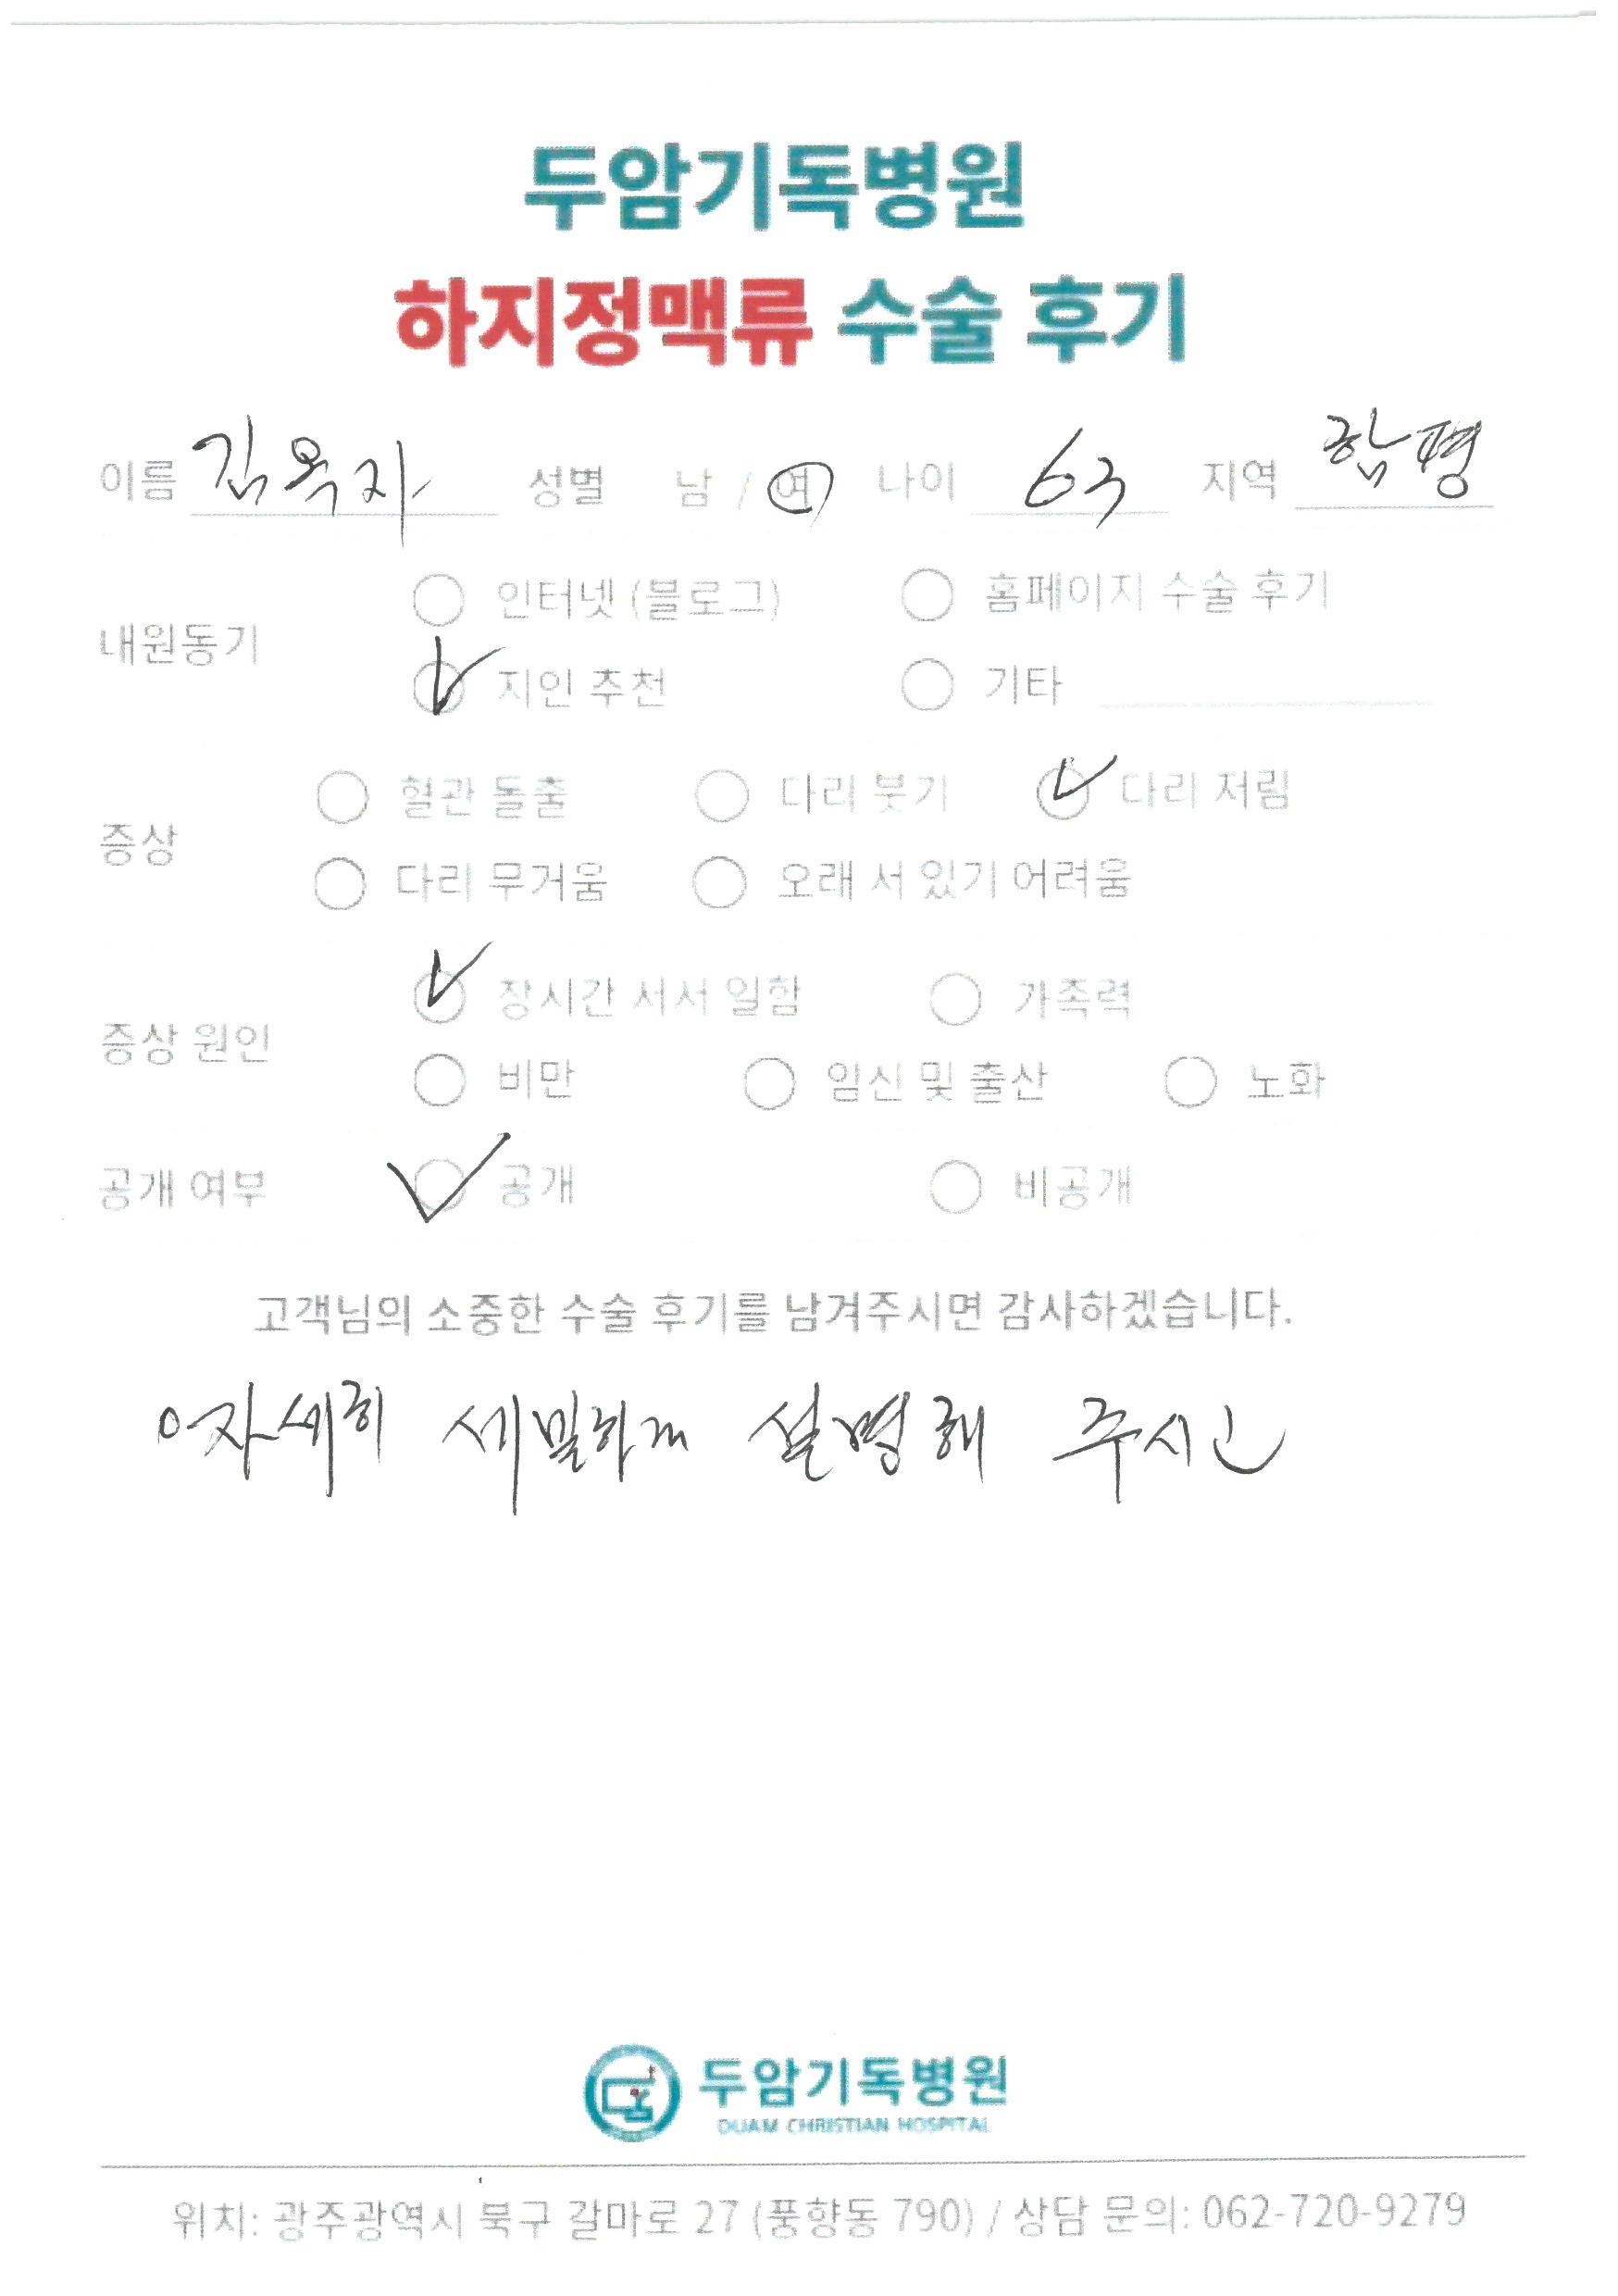 두암기독병원
하지정맥류 수술 후기
이름 김옥자 성별 남 / 여 나이 63 지역 함평
인터넷 (블로그) 홈페이지 수술 후기
내원동기
지인 추천 기타
혈관 돌출 다리 붓기 다리 저림
증상
다리 무거움 오래 서 있기 어려움
장시간 서서 일함 가족력
증상 원인
비만 임신 및 출산 노화
공개 여부 공개 비공개
고객님의 소중한 수술 후기를 남겨주시면 감사하겠습니다.
자세히 세밀하게 설명해 주시고
두암기독병원
DUAM CHRISTIAN HOSPITAL
위치: 광주광역시 북구 갈마로 27 (풍향동 790) / 상담 문의: 062-720-9279